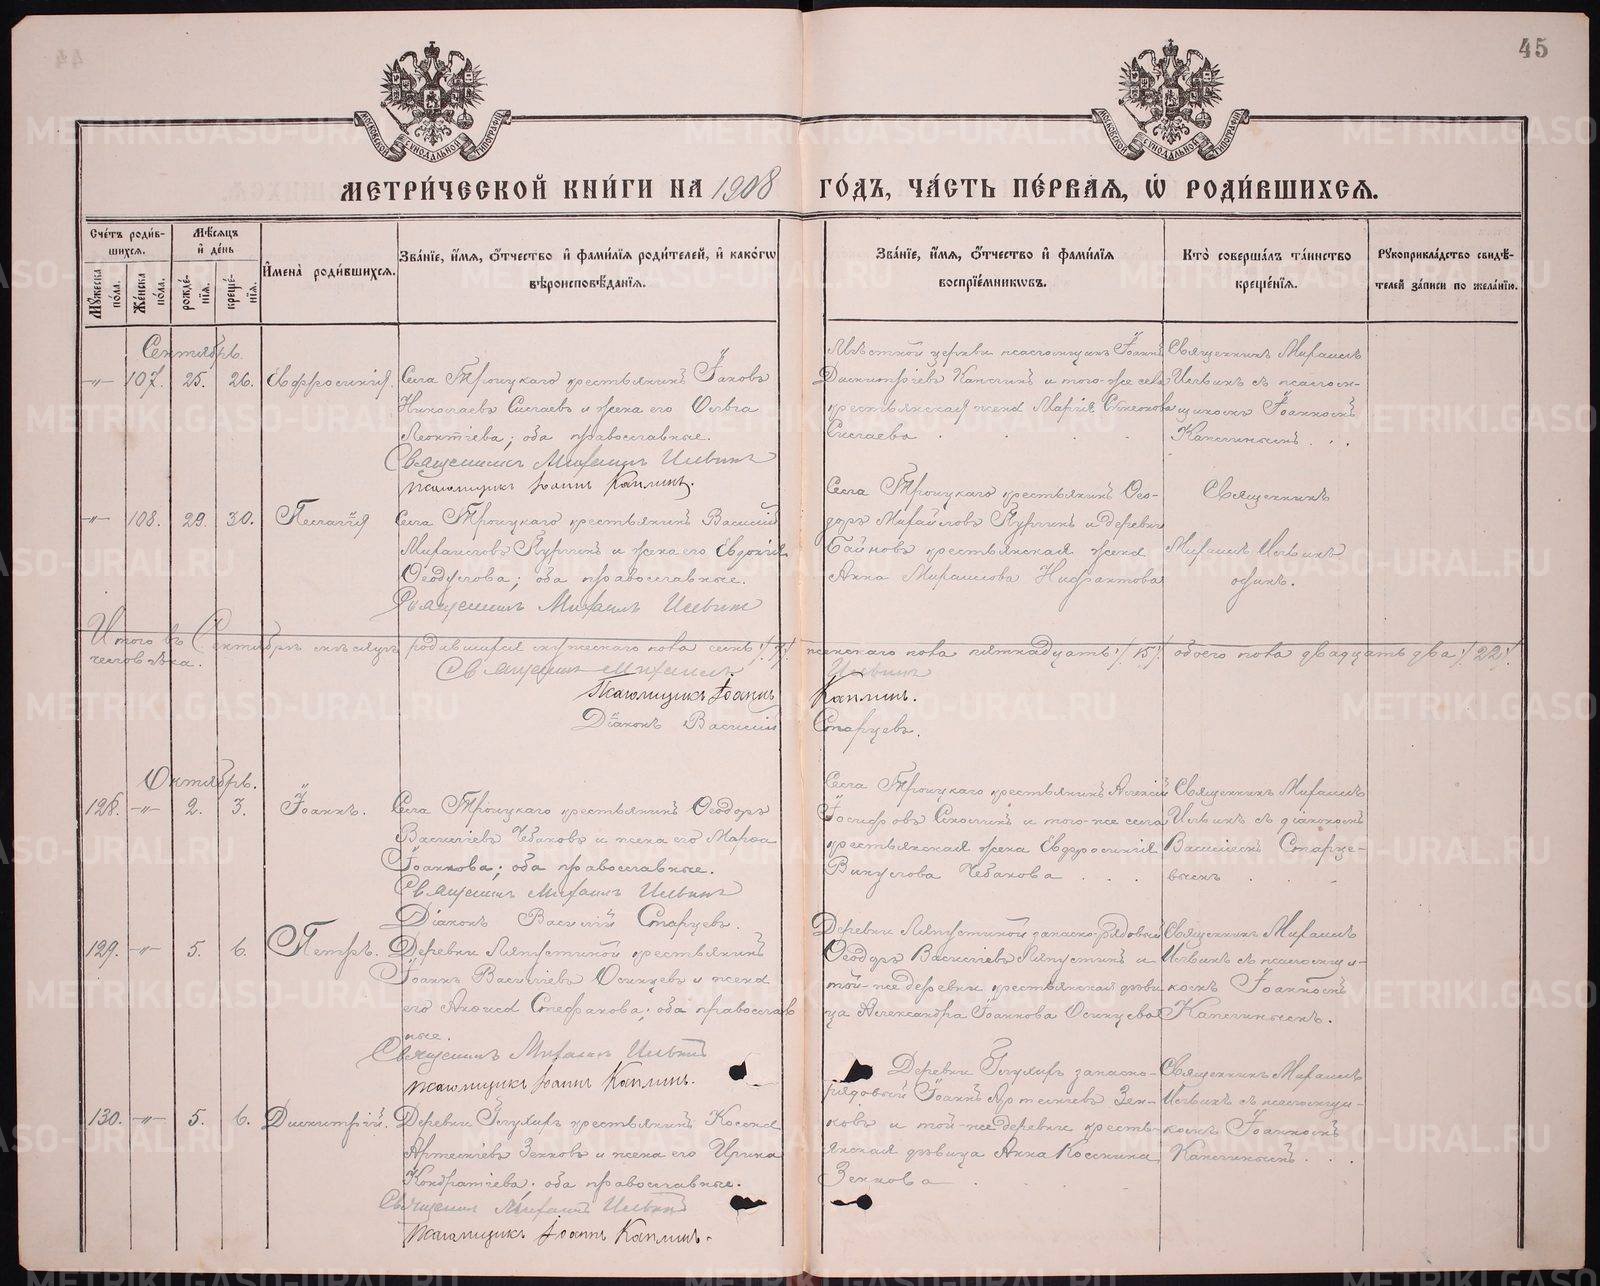 45
МЕТРИ́ЧЕСКОЙ КНИ́ГИ НА 1908 ГО́ДЪ, ЧА́СТЬ ПЕ́РВАѦ, Ѡ҆ РОДИ́ВШИХСѦ.
Сче́тъ роди́вшихсѧ.
Мꙋ́жеска по́ла.
Же́нска по́ла.
Мѣ́сѧцъ и҆ де́нь
рожде́нїѧ.
креще́нїѧ.
И҆мена̀ роди́вшихсѧ.
Зва́нїе, и҆́мѧ, ѻ҆́тчество и҆ фами́лїѧ роди́телей, и҆ како́гѡ вѣроисповѣ́данїѧ.
Зва́нїе, и҆́мѧ, ѻ҆́тчество и҆ фами́лїѧ воспрїе́мникѡвъ.
Кто̀ соверша́лъ та́инство креще́нїѧ.
Рꙋкоприкла́дство свидѣ́телей за́писи по жела́нїю.
Сентябрь.
-"- 107. 25. 26. Евфросинія.
Села Троицкаго крестьянинъ Іаковъ
Николаевъ Сысаевъ и жена его Ольга
Леонтіева; оба православные.
Священникъ Михаилъ Ильинъ
Псаломщикъ Іоаннъ Каплинъ.
Мѣстной церкви псаломщикъ Іоаннъ
Димитріевъ Каплинъ и того-же села
крестьянская жена Марія Симеонова
Сысаева
Священникъ Михаилъ
Ильинъ съ псалом-
щикомъ Іоанномъ
Каплинымъ.
-"- 108. 29. 30. Пелагія
Села Троицкаго крестьянинъ Василій
Михаиловъ и жена его Евдокія
Ѳеодулова; оба православные.
Священникъ Михаилъ Ильинъ
Села Троицкаго крестьянинъ Ѳео-
доръ Михайловъ и деревни
крестьянская жена
Анна Михаилова Нифантова
Священникъ
Михаилъ Ильинъ
одинъ.
Итого въ Сентябрѣ мѣсяцѣ родившихся мужескаго пола семь /7/ женскаго пола пятнадцать /15/ обоего пола двадцать два /22/
человѣка.
Священникъ Михаилъ Ильинъ
Псаломщикъ Іоаннъ Каплинъ.
Діаконъ Василій Старцевъ.
Октябрь.
128. -"- 2. 3. Іоаннъ.
Села Троицкаго крестьянинъ Ѳеодоръ
Василіевъ Чебаковъ и жена его Марѳа
Іоаннова; оба православные.
Священникъ Михаилъ Ильинъ
Діаконъ Василій Старцевъ.
Села Троицкаго крестьянинъ Алексій
Іосифовъ и того-же села
крестьянская жена Евфросинія
Викулова Чебакова
Священникъ Михаилъ
Ильинъ съ діакономъ
Василіемъ Старце-
вымъ
129. -"- 5. 6. Петръ.
Деревни Ляпустиной крестьянинъ
Іоаннъ Василіевъ Осинцевъ и жена
его Анѳиса Стефанова; оба православ
ные.
Священникъ Михаилъ Ильинъ
Псаломщикъ Іоаннъ Каплинъ.
Деревни Ляпустиной запасно-рядовый
Ѳеодоръ Василіевъ Ляпустинъ и
той-же деревни крестьянская дѣви
ца Александра Іоаннова Осинцева
Священникъ Михаилъ
Ильинъ съ псаломщи-
комъ Іоанномъ
Каплинымъ.
130. -"- 5. 6. Димитрій.
Деревни Глухихъ крестьянинъ Косьма
Артеміевъ Зенковъ и жена его Ирина
Кондратіева. оба православные.
Священникъ Михаилъ Ильинъ
Псаломщикъ Іоаннъ Каплинъ.
Деревни Глухихъ запасно-
рядовый Іоаннъ Артеміевъ Зен-
ковъ и той-же деревни кресть-
янская дѣвица Анна Космина
Зенкова
Священникъ Михаилъ
Ильинъ съ псаломщи-
комъ Іоанномъ
Каплинымъ.
METRIKI.GASO-URAL.RU